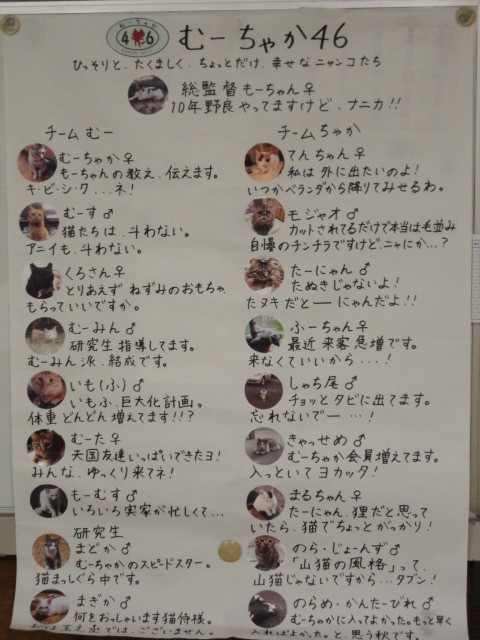 むーちゃか
46
むーちゃか46
ひっそりと、たくましく、ちょっとだけ、幸せなニャンコたち
総監督もーちゃん♀
10年野良やってますけど、ナニカ!!
チームむー
むーちゃか♀
もーちゃんの教え、伝えます。
キ・ビ・シ・ク...ネ!
むーす♂
猫たちは、斗わない。
アニイも、斗わない。
くろさん♀
とりあえず ねずみのおもちゃ、
もらっていいですか。
むーみん♂
研究生 指導してます。
むーみん派、結成です。
いも(ふ)♂
いもふ、巨大化計画。
体重どんどん増えてます!!?
むーた♀
天国友達いっぱいできたヨ!
みんな、ゆっくり来てネ!
もーむす♂
いろいろ実家が忙しくて...
研究生
まどか♂
むーちゃかのスピードスター。
猫まっしぐら中です。
まぎか♂
何をおっしゃいます猫侍様。
ではございません。
チームちゃか
てんちゃん♀
私は 外に出たいのよ!
いつかベランダから降りてみせるわ。
モジャオ♂
カットされてるだけで本当は毛並み
自慢のチンチラですけど、ニャにか...?
たーにゃん♂
たぬきじゃないよ!
たヌキだとーーにゃんだよ!!
ふーちゃん♀
最近 来客 急増です。
来なくていいから...!
しゃち尾♂
チョッとタビに出てます。
忘れないでー...!
きゃっせめ♂
むーちゃか会員増えてます。
入っといてヨカッタ!
まるちゃん♀
たーにゃん、狸だと思って
いたら、猫でちょっとがっかり!
のら・じょーんず♂
「山猫の風格」って、
山猫じゃないですから...タブン!
のらめ・かんたーびれ♂
むーちゃかに入ってよかった。もっと早く
入ればよかった。と思う秋です。